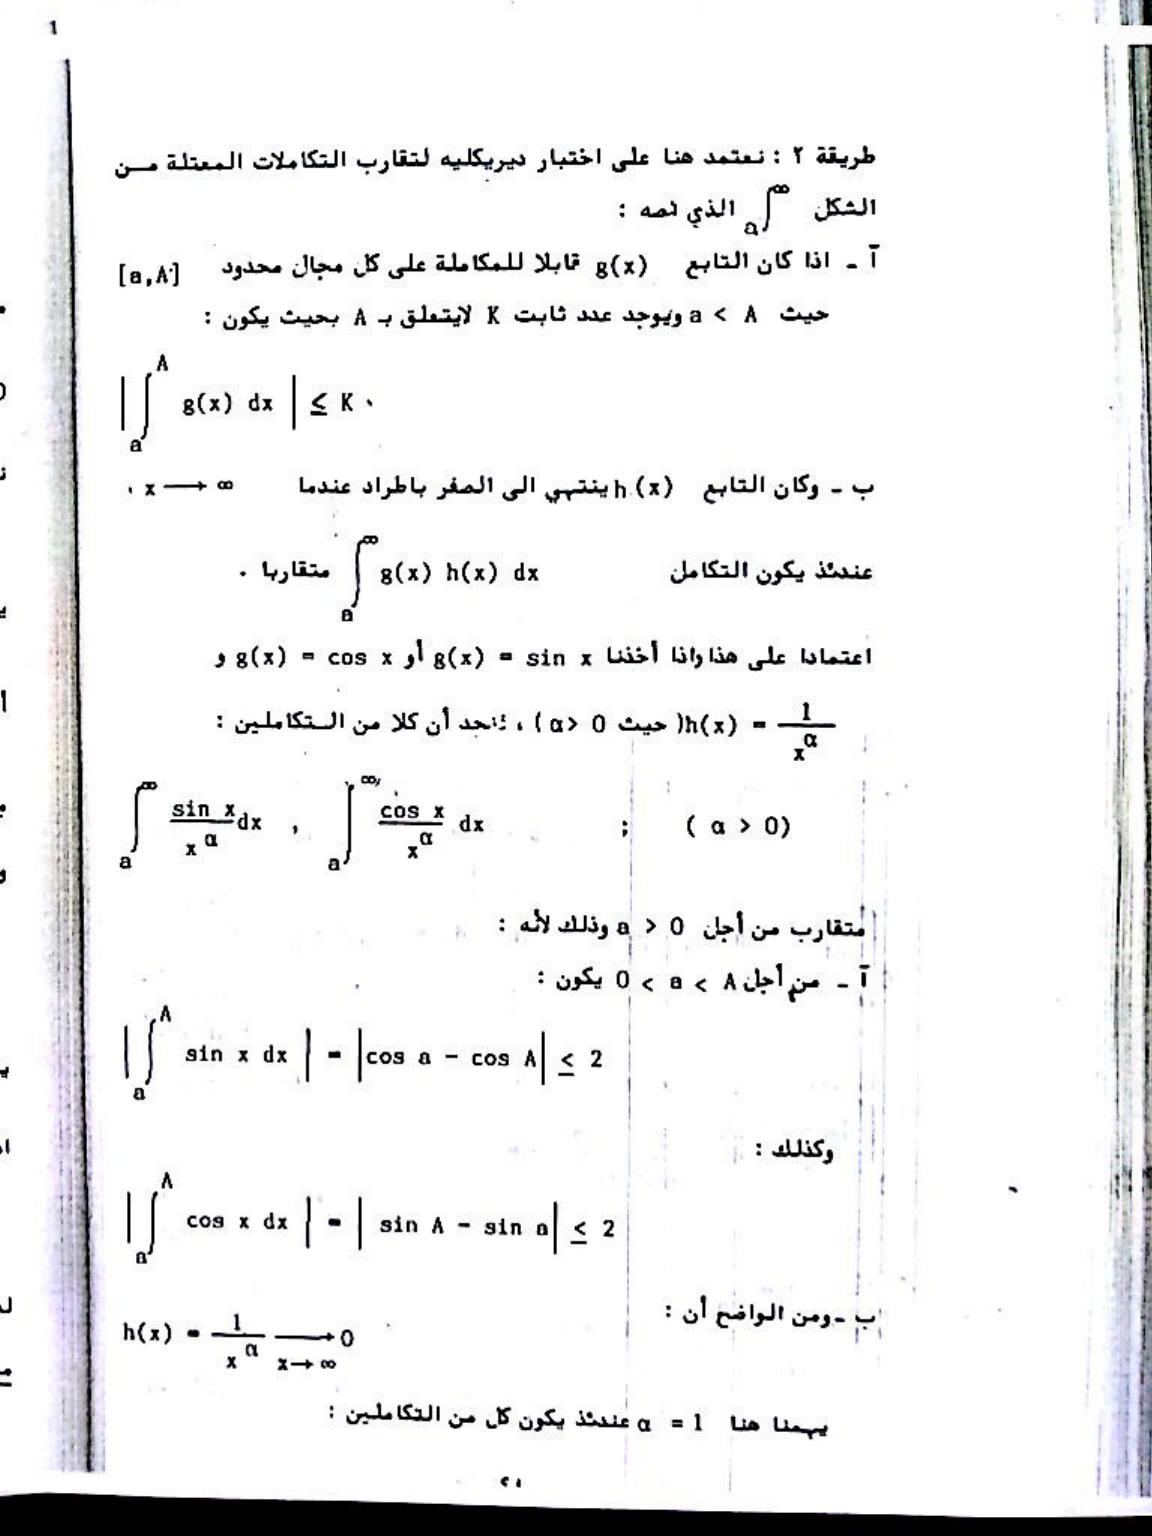 1
طريقة ٢ : نعتمد هنا على اختبار ديريكليه لتقارب التكاملات المعتلة مـن
الشكل ∫_a^∞ الذي نصه :
آ ـ اذا كان التابع g(x) قابلا للمكاملة على كل مجال محدود [a,A]
حيث a < A ويوجد عدد ثابت K لايتعلق بـ A بحيث يكون :
| ∫_a^A g(x) dx | ≤ K ،
ب ـ وكان التابع h(x) ينتهي الى الصفر باطراد عندما x ⟶ ∞ ،
عندئذ يكون التكامل ∫_a^∞ g(x) h(x) dx متقاربا .
اعتمادا على هذا واذا أخذنا g(x) = sin x أو g(x) = cos x و
h(x) = 1/x^α (حيث α > 0) ، نجد أن كلا من الـتكاملين :
∫_a^∞ sin x/x^α dx , ∫_a^∞ cos x/x^α dx ; ( α > 0)
متقارب من أجل a > 0 وذلك لأنه :
آ ـ من أجل 0 < a < A يكون :
| ∫_a^A sin x dx | = |cos a − cos A| ≤ 2
وكذلك :
| ∫_a^A cos x dx | = | sin A − sin a| ≤ 2
ب ـ ومن الواضح أن :
h(x) = 1/x^α ⟶ 0 x→∞
يهمنا هنا α = 1 عندئذ يكون كل من التكاملين :